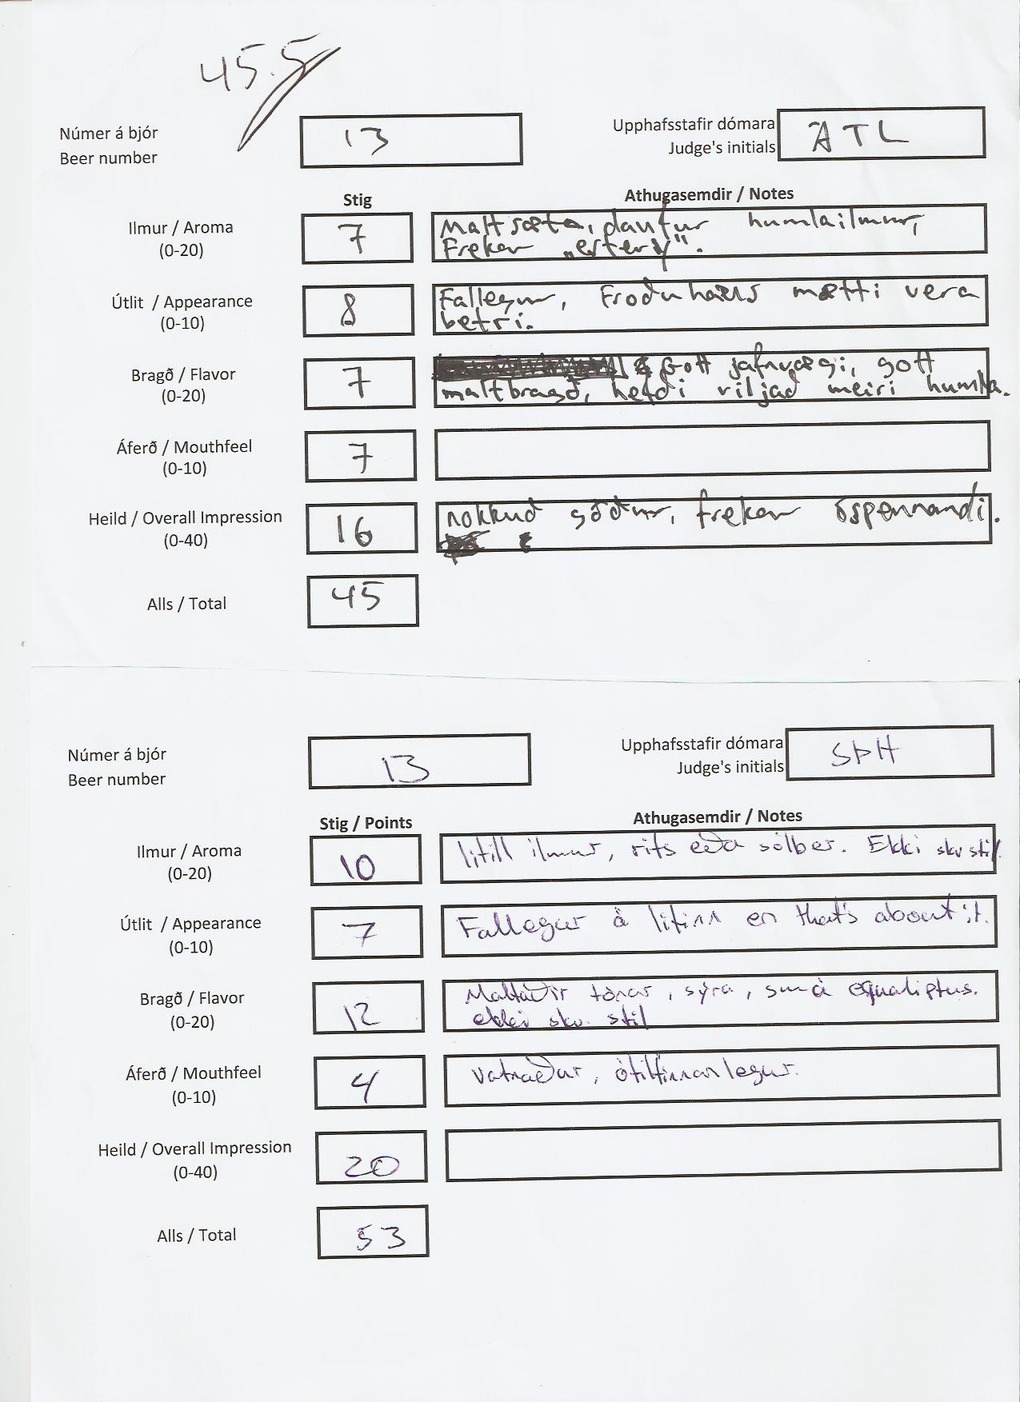 45.5
Númer á bjór
Beer number
13
Upphafsstafir dómara
Judge's initials
ÁTL
Stig
Athugasemdir / Notes
Ilmur / Aroma
(0-20)
7
Malt sæta, daufur humlailmur,
Frekar „estery".
Útlit / Appearance
(0-10)
8
Fallegur, Froðuhaus mætti vera
betri.
Bragð / Flavor
(0-20)
7
Gott jafnvægi, gott
maltbragð, hefði viljað meiri humla.
Áferð / Mouthfeel
(0-10)
7
Heild / Overall Impression
(0-40)
16
nokkuð góður, frekar óspennandi.
Alls / Total
45
Númer á bjór
Beer number
13
Upphafsstafir dómara
Judge's initials
SÞH
Stig / Points
Athugasemdir / Notes
Ilmur / Aroma
(0-20)
10
lítill ilmur, rifs eða sólber. Ekki skv stíl
Útlit / Appearance
(0-10)
7
Fallegur á litinn en that's about it.
Bragð / Flavor
(0-20)
12
Maltaðir tónar, sýra, smá equaliptus.
ekki skv. stíl
Áferð / Mouthfeel
(0-10)
4
Vatnaður, ótilfinnanlegur.
Heild / Overall Impression
(0-40)
20
Alls / Total
53